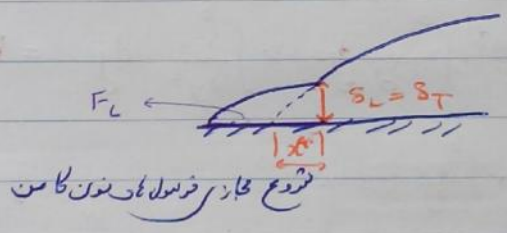 F_L
δ_L = δ_T
x*
شروع مجازی فرمول های فون کارمن